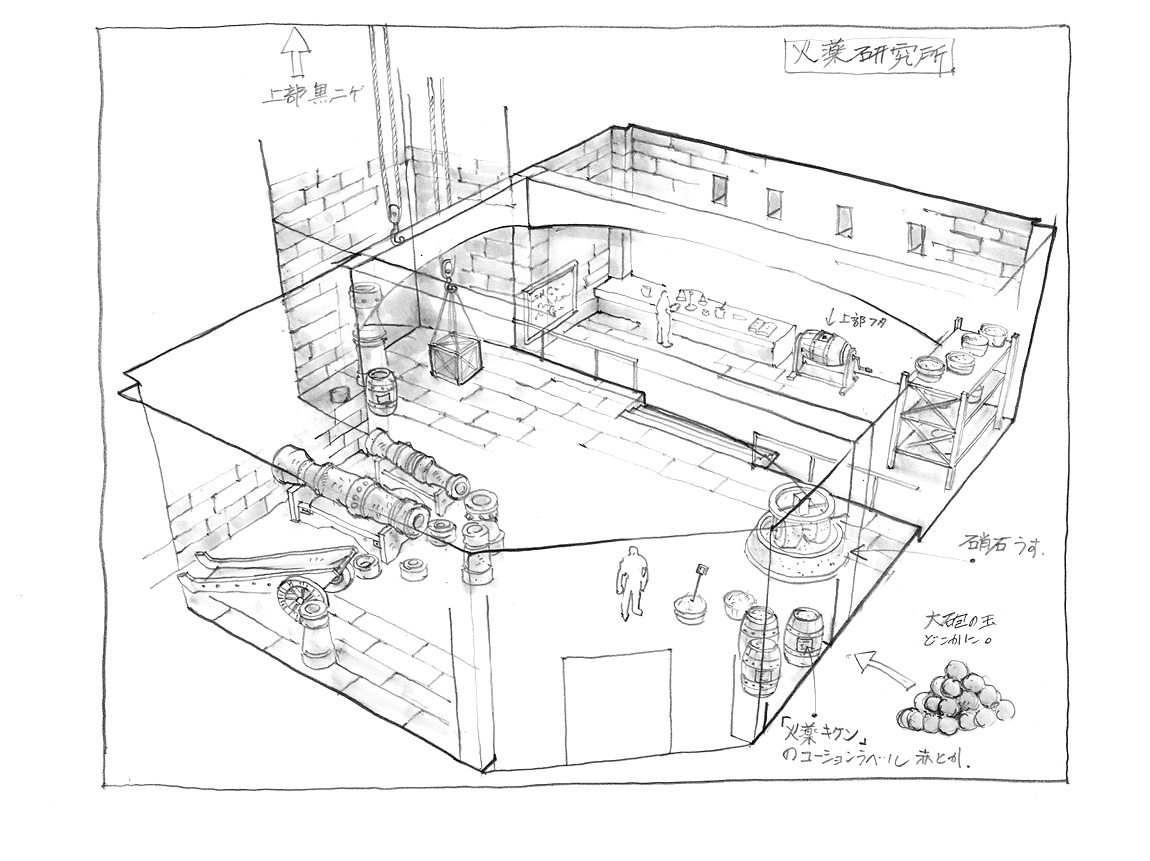 火薬研究所
上部黒ニゲ
↓上部フタ
硝石うす.
大砲の玉
どこかに。
「火薬キケン」
のコーションラベル 赤とか.